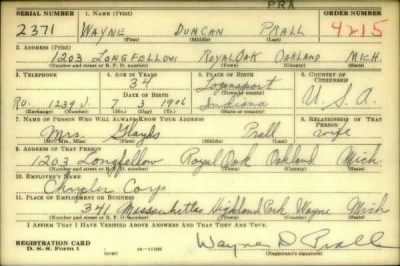 PRA
SERIAL NUMBER 1. NAME (Print) ORDER NUMBER
2371 WAYNE DUNCAN PRALL 4215
(First) (Middle) (Last)
2. ADDRESS (Print)
1203 LONGFELLOW ROYAL OAK OAKLAND MICH.
(Number and street or R. F. D. number) (Town) (County) (State)
3. TELEPHONE 4. AGE IN YEARS 5. PLACE OF BIRTH 6. COUNTRY OF CITIZENSHIP
34 Logansport
DATE OF BIRTH (Town or county)
Ro. 1239 J. 7 3 1906 Indiana U.S.A.
(Exchange) (Number) (Mo.) (Day) (Yr.) (State or country)
7. NAME OF PERSON WHO WILL ALWAYS KNOW YOUR ADDRESS 8. RELATIONSHIP OF THAT PERSON
Mrs. Gladys Prall wife
(Mr., Mrs., Miss) (First) (Middle) (Last)
9. ADDRESS OF THAT PERSON
1203 Longfellow Royal Oak Oakland Mich.
(Number and street or R. F. D. number) (Town) (County) (State)
10. EMPLOYER'S NAME
Chrysler Corp
11. PLACE OF EMPLOYMENT OR BUSINESS
341 Massachusetts Highland Park Wayne Mich
(Number and street or R. F. D. number) (Town) (County) (State)
I AFFIRM THAT I HAVE VERIFIED ABOVE ANSWERS AND THAT THEY ARE TRUE.
REGISTRATION CARD
D. S. S. Form 1 (over) Wayne D Prall
(Registrant's signature)